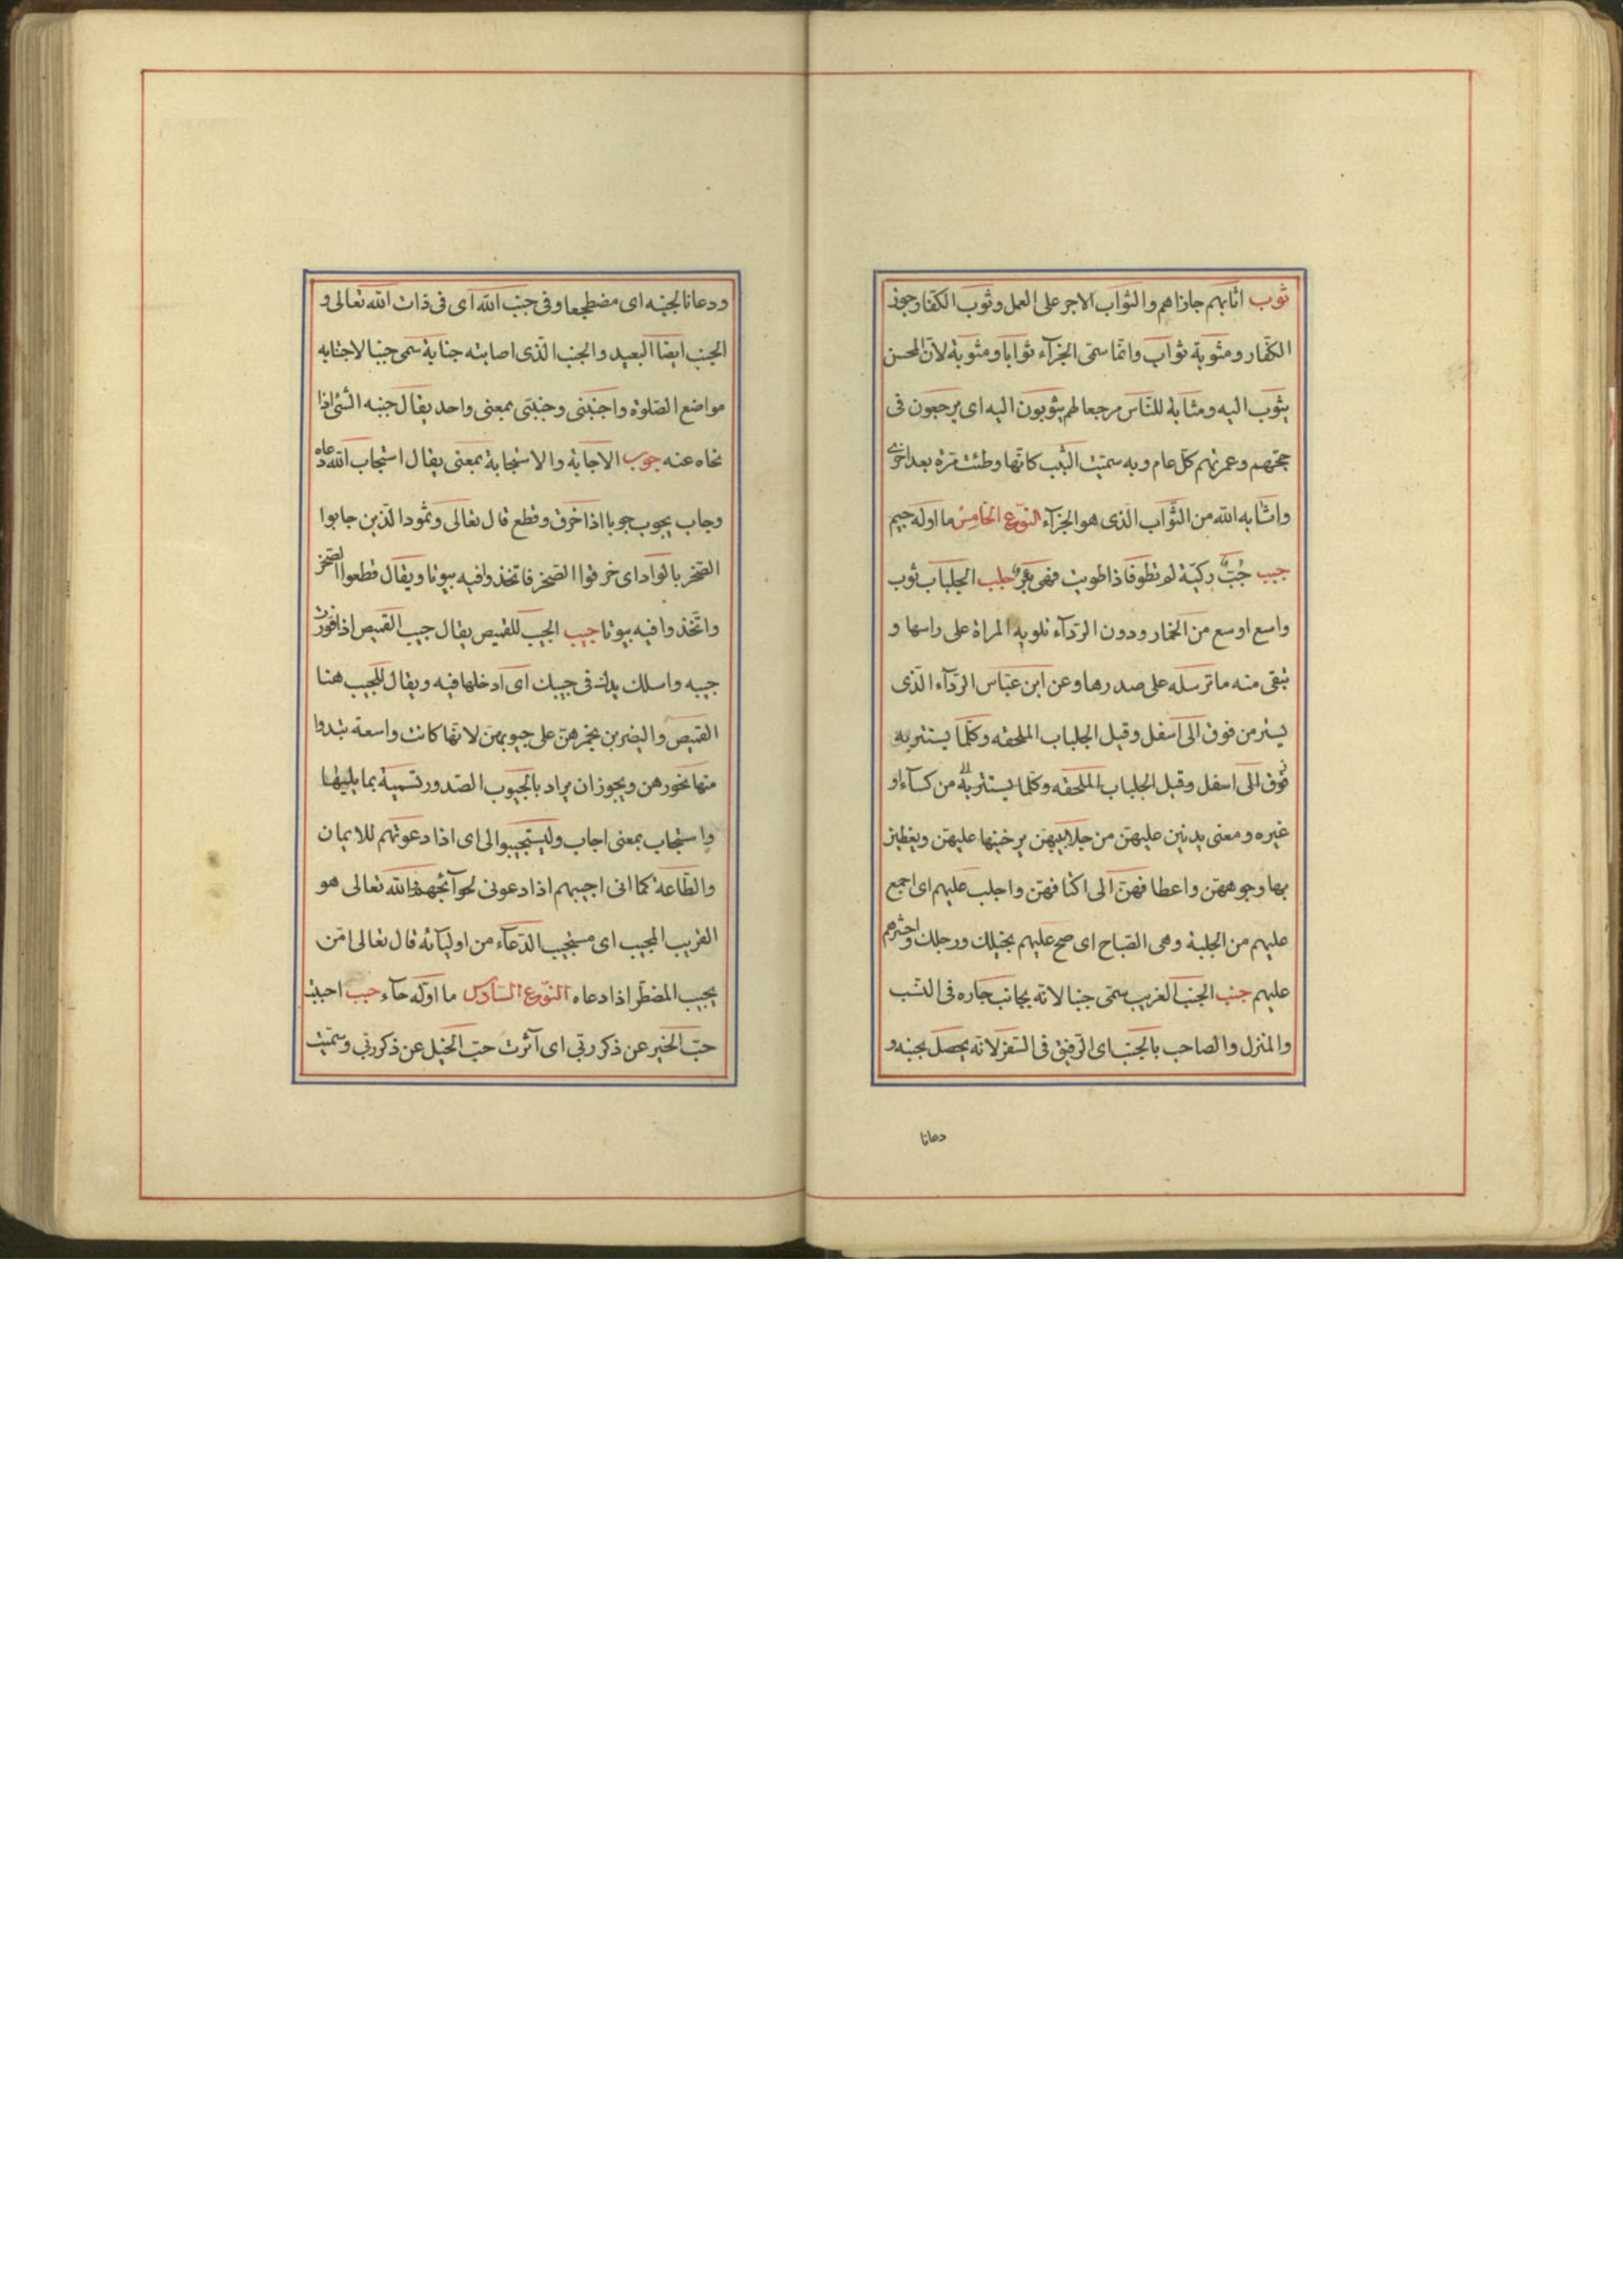 ثوب اثابهم جازاهم والثواب الاجر على العمل وثوب الكفار جوزى
الكفار ومثوبة ثواب وانما سمى الجزآء ثوابا ومثوبة لان المحسن
يثوب اليه ومثابة للناس مرجعا لهم يثوبون اليه اى يرجعون فى
حجهم وعمرتهم كل عام وبه سميت الثيب كانها وطئت مرة بعد اخرى
واثابه الله من الثواب الذى هو الجزآء النوع الخامس ما اوله جيم
جبب جُبّ ركيّة لم تطو فاذا طويت فهى بئر جلب الجلباب ثوب
واسع اوسع من الخمار ودون الردآء تلويه المراة على راسها و
تبقى منه ما ترسله على صدرها وعن ابن عباس الردآء الذى
يستر من فوق الى اسفل وقيل الجلباب الملحفه وكلما يستتر به
فوق الى اسفل وقيل الجلباب الملحفه وكلما يستتر به من كسآء او
غيره ومعنى يدنين عليهن من جلابيبهن يرخينها عليهن ويغطين
بها وجوههن واعطافهن الى اكنافهن واجلب عليهم اى اجمع
عليهم من الجلبة وهى الصياح اى صح عليهم بخيلك ورجلك واحشرهم
عليهم جنب الجنب الغريب سمى جنبا لانه بجانب جاره فى النسب
والمنزل والصاحب بالجنب اى الرفيق فى السفر لانه يحصل لجنبه و
دعانا
ودعانا لجنبه اى مضطجعا وفى جنب الله اى فى ذات الله تعالى و
الجنب ايضا البعيد والجنب الذى اصابته جنابة سمى جنبا لاجتنابه
مواضع الصلوة واجنبنى وجنبنى بمعنى واحد يقال جنبه الشئ اذا
نحاه عنه جوب الاجابة والاستجابة بمعنى يقال استجاب الله دعاه
وجاب يجوب جوبا اذا خرق وقطع قال تعالى وثمود الذين جابوا
الصخر بالواد اى خرقوا الصخر فاتخذوا فيه بيوتا ويقال قطعوا الصخر
واتخذوا فيه بيوتا جيب الجيب للقميص يقال جيب القميص اذا قورت
جيبه واسلك يدك فى جيبك اى ادخلها فيه ويقال للجيب هنا
القميص وليضربن بخمرهن على جيوبهن لانها كانت واسعة تبدوا
منها نحورهن ويجوز ان يراد بالجيوب الصدور تسمية بما يليها
واستجاب بمعنى اجاب وليستجيبوا لى اى اذا دعوتهم للايمان
والطاعة كما انى اجيبهم اذا دعونى لحوآئجهم الله تعالى هو
القريب المجيب اى مستجيب الدعآء من اوليآئه قال تعالى امن
يجيب المضطر اذا دعاه النوع السادس ما اوله حآء حبب احببت
حب الخير عن ذكر ربى اى آثرت حب الخيل عن ذكر ربى وسميت